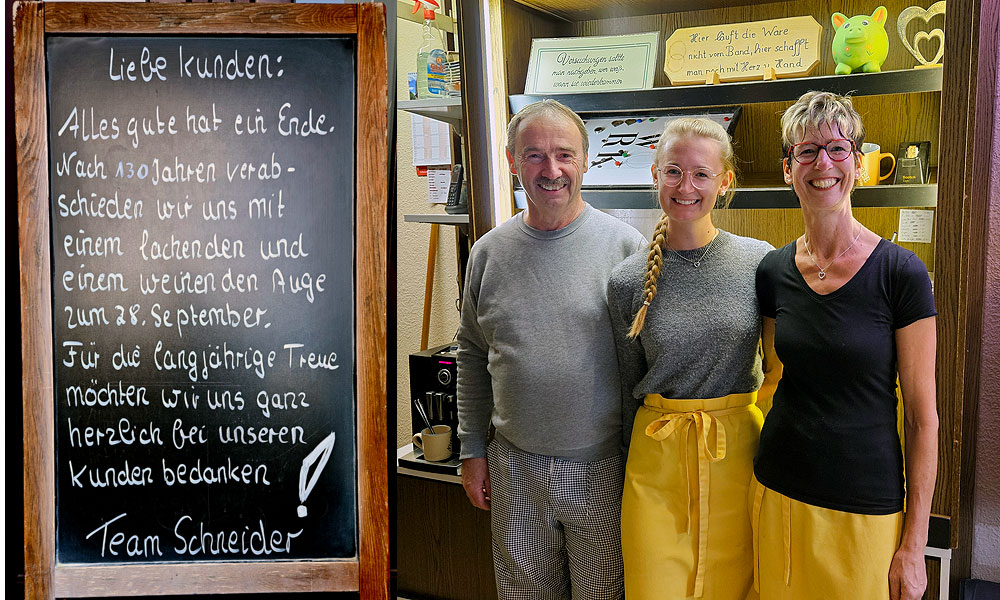 Liebe Kunden:
Alles gute hat ein Ende.
Nach 130 Jahren verab-
schieden wir uns mit
einem lachenden und
einem weinenden Auge
zum 28. September.
Für die langjährige Treue
möchten wir uns ganz
herzlich bei unseren
Kunden bedanken !
Team Schneider
Versuchungen sollte
man nachgeben, wer weiß,
wann sie wiederkommen
Hier läuft die Ware
nicht vom Band, hier schafft
man noch mit Herz u. Hand